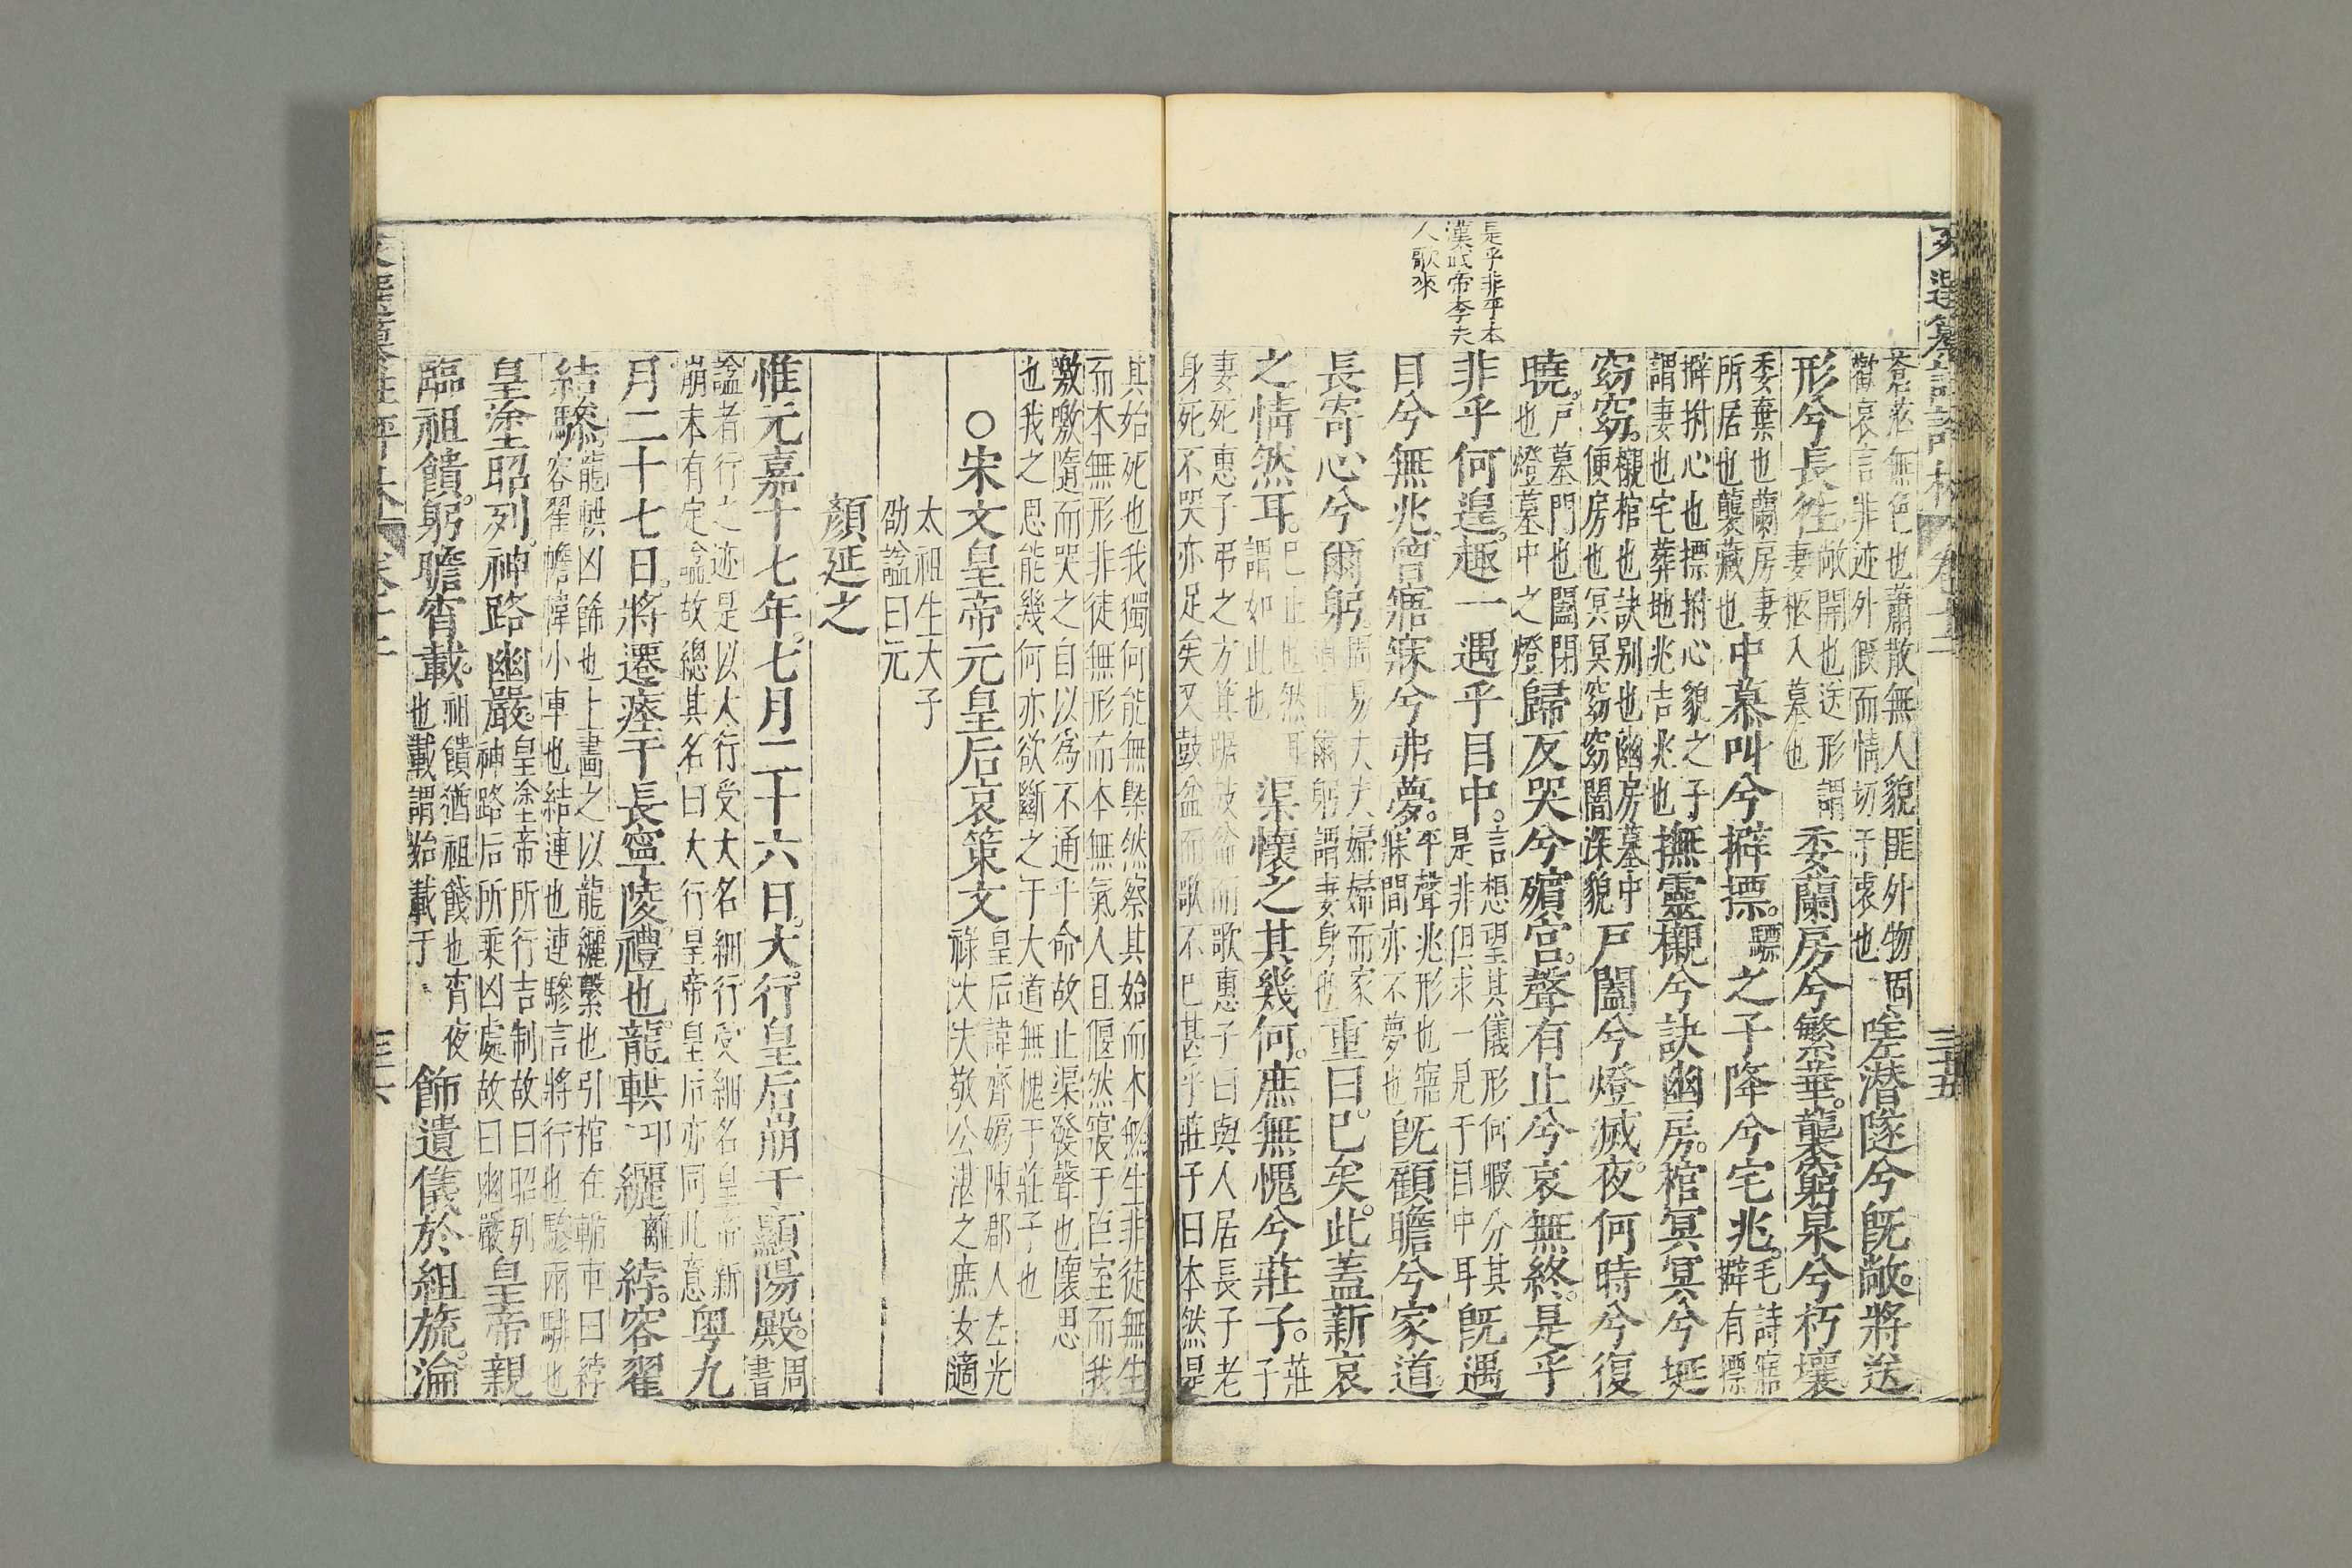 是乎非乎本
漢武帝李夫
人歌來
蒼茫無色也蕭散無人貌匪外物固
歎哀言非迹外假而情切于衷也
嗟潛隧兮既敞。將送
形兮長往。
敞開也送形謂
妻柩入墓也
委蘭房兮繁華。襲窮泉兮朽壤。
委棄也蘭房妻
所居也襲藏也
中慕叫兮擗摽。
驃
之子降兮宅兆。
毛詩寤
擗有摽
擗拊心也摽拊心貌之子
謂妻也宅葬地兆吉兆也
撫靈櫬兮訣幽房。棺冥冥兮埏
窈窈。
櫬棺也訣別也幽房墓中
便房也冥冥窈窈闇深貌
戸闔兮燈滅夜。何時兮復
曉。
戸墓門也闔閉
也燈墓中之燈
歸反哭兮殯宮。聲有止兮哀無終。是乎
非乎何遑。趣一遇乎目中。
言想望其儀形何暇分其
是非但求一見于目中耳
既遇
目兮無兆。曾寤寐兮弗夢。
平聲兆形也寤
寐間亦不夢也
既顧瞻兮家道。
長寄心兮爾躬。
周易夫夫婦婦而家
道正爾躬謂妻身也
重曰。巳矣。此蓋新哀
之情然耳。
巳止也然耳
謂如此也
渠懷之其幾何。庶無愧兮莊子。
莊
子
妻死惠子弔之方箕踞鼓盆而歌惠子曰與人居長子老
身死不哭亦足矣又鼓盆而歌不巳甚乎莊子曰不然是
其始死也我獨何能無槩然察其始而本無生非徒無生
而本無形非徒無形而本無氣人且偃然寢于巨室而我
噭噭隨而哭之自以為不通乎命故止渠發聲也懷思
也我之思能幾何亦欲斷之于大道無愧于莊子也
○宋文皇帝元皇后哀策文
皇后諱齊嬀陳郡人左光
祿大夫敬公湛之庶女適
太祖生大子
劭謚曰元
顏延之
惟元嘉十七年。七月二十六日。大行皇后崩于顯陽殿。
周
書
謚者行之迹是以大行受大名細行受細名皇帝新
崩未有定謚故總其名曰大行皇帝皇后亦同此意
粤九
月二十七日。將遷座于長寧陵。禮也。龍輁
邛
纚
離
綍。容翟
結驂。
龍輁凶飾也上畫之以龍纚繫也引棺在輴車曰綍
容翟幨幃小車也結連也連驂言將行也驂兩騑也
皇塗昭列。神路幽嚴。
皇塗帝所行吉制故曰昭列
神路后所乘凶處故曰幽嚴
皇帝親
臨祖饋。躬瞻宵載。
祖饋猶祖餞也宵夜
也載謂始載于
飾遺儀於組旒。淪
文選纂註評林
卷十二
三十五